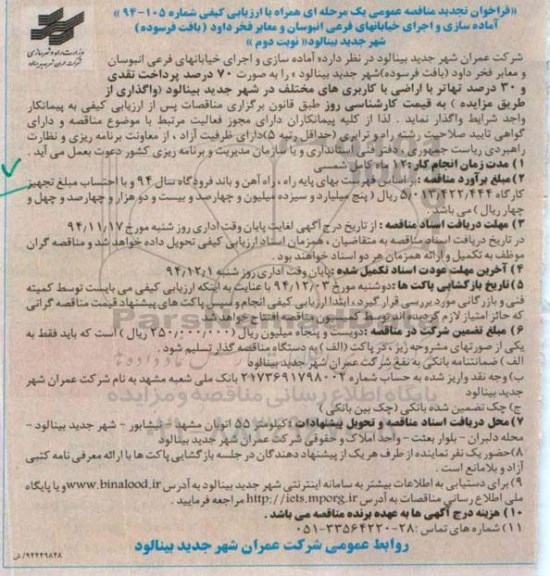 «فراخوان تجدید مناقصه عمومی یک مرحله ای همراه با ارزیابی کیفی شماره ۱۰۵-۹۴»
آماده سازی و اجرای خیابانهای فرعی اتبوسان و معابر فخر داود (بافت فرسوده)
شهر جدید بینالود« نوبت دوم »
شرکت عمران شهر جدید بینالود در نظر دارد« آماده سازی و اجرای خیابانهای فرعی اتبوسان
و معابر فخر داود (بافت فرسوده)شهر جدید بینالود » را به صورت ۷۰ درصد پرداخت نقدی
و ۳۰ درصد تهاتر با اراضی با کاربری های مختلف در شهر جدید بینالود (واگذاری از
طریق مزایده ) به قیمت کارشناسی روز طبق قانون برگزاری مناقصات پس از ارزیابی کیفی به پیمانکار
واجد شرایط واگذار نماید . لذا از کلیه پیمانکاران دارای مجوز فعالیت مرتبط با موضوع مناقصه و دارای
گواهی تایید صلاحیت رشته راه و ترابری (حداقل رتبه ۵)دارای ظرفیت آزاد ، از معاونت برنامه ریزی و نظارت
راهبردی ریاست جمهوری ، دفتر فنی استانداری و یا سازمان مدیریت و برنامه ریزی کشور دعوت بعمل می آید .
۱) مدت زمان انجام کار :۱۲ ماه کامل شمسی
۲)مبلغ برآورد مناقصه : بر اساس فهرست بهای پایه راه ، راه آهن و باند فرودگاه سال ۹۴ و با احتساب مبلغ تجهیز
کارگاه ۵/۰۱۳/۴۲۲/۴۴۴ ریال ( پنج میلیارد و سیزده میلیون و چهارصد و بیست و دو هزار و چهارصد و چهل و
چهار ریال ) می باشد .
۳) مهلت دریافت اسناد مناقصه : از تاریخ درج آگهی لغایت پایان وقت اداری روز شنبه مورخ ۹۴/۱۱/۱۷
در تاریخ دریافت اسناد مناقصه به متقاضیان ، همزمان اسناد ارزیابی کیفی تحویل داده خواهد شد و مناقصه گران
موظف به تکمیل و ارائه همزمان هر دو اسناد خواهند بود .
۴) آخرین مهلت عودت اسناد تکمیل شده :پایان وقت اداری روز شنبه ۹۴/۱۲/۱
۵) تاریخ بازگشایی پاکت ها :دوشنبه مورخ ۹۴/۱۲/۰۳ با عنایت به اینکه ارزیابی کیفی می بایست توسط کمیته
فنی و بازرگانی مورد بررسی قرار گیرد، ابتدا ارزیابی کیفی انجام و سپس پاکت های پیشنهاد قیمت مناقصه گرانی
که حائز امتیاز لازم گردیده اند توسط کمیسیون مناقصه افتتاح خواهد شد .
۶) مبلغ تضمین شرکت در مناقصه :دویست و پنجاه میلیون ریال (۲۵۰/۰۰۰/۰۰۰ ریال ) است که باید فقط به
یکی از صورتهای مشروحه زیر ،در پاکت (الف ) به دستگاه مناقصه گذار تسلیم شود .
الف ) ضمانتنامه بانکی به نفع شرکت عمران شهر جدید بینالود
ب) وجه نقد واریز شده به حساب شماره ۲۱۷۳۶۹۱۷۹۸۰۰۲ بانک ملی شعبه مشهد به نام شرکت عمران شهر
جدید بینالود
ج) چک تضمین شده بانکی (چک بین بانکی )
۷) محل دریافت اسناد مناقصه و تحویل پیشنهادات :کیلومتر ۵۵ اتوبان مشهد – نیشابور – شهر جدید بینالود –
محله دلبران – بلوار بعثت – واحد املاک و حقوقی شرکت عمران شهر جدید بینالود
۸)حضور یک نفر نماینده از طرف هر یک از پیشنهاد دهندگان در جلسه بازگشایی پاکت ها با ارائه معرفی نامه کتبی
آزاد و بلامانع است .
۹) برای دستیابی به اطلاعات بیشتر به سامانه اینترنتی شهر جدید بینالود به آدرس www.binalood.irو یا پایگاه
ملی اطلاع رسانی مناقصات به آدرس http://iets.mporg.ir مراجعه فرمایید .
۱۰) هزینه درج آگهی ها به عهده برنده مناقصه می باشد .
۱۱) شماره های تماس :۲۸-۳۳۵۶۴۲۲۰-۰۵۱
روابط عمومی شرکت عمران شهر جدید بینالود
۹۴۴۴۹۸۴۸/ش